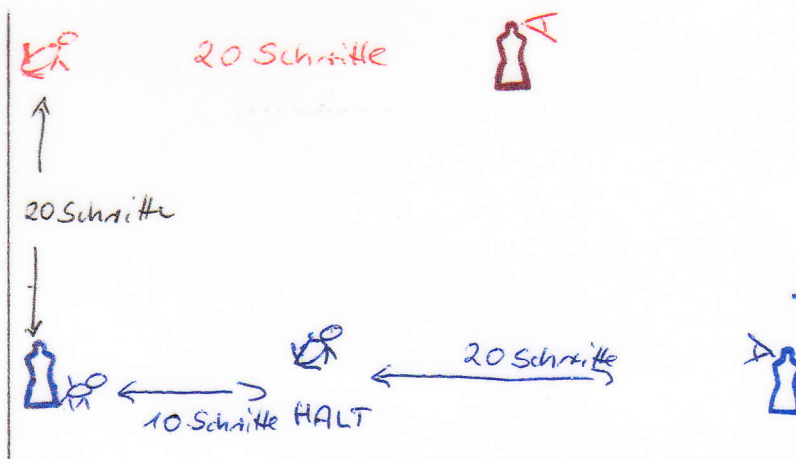 20 Schritte
20 Schritte
20 Schritte
10 Schritte HALT